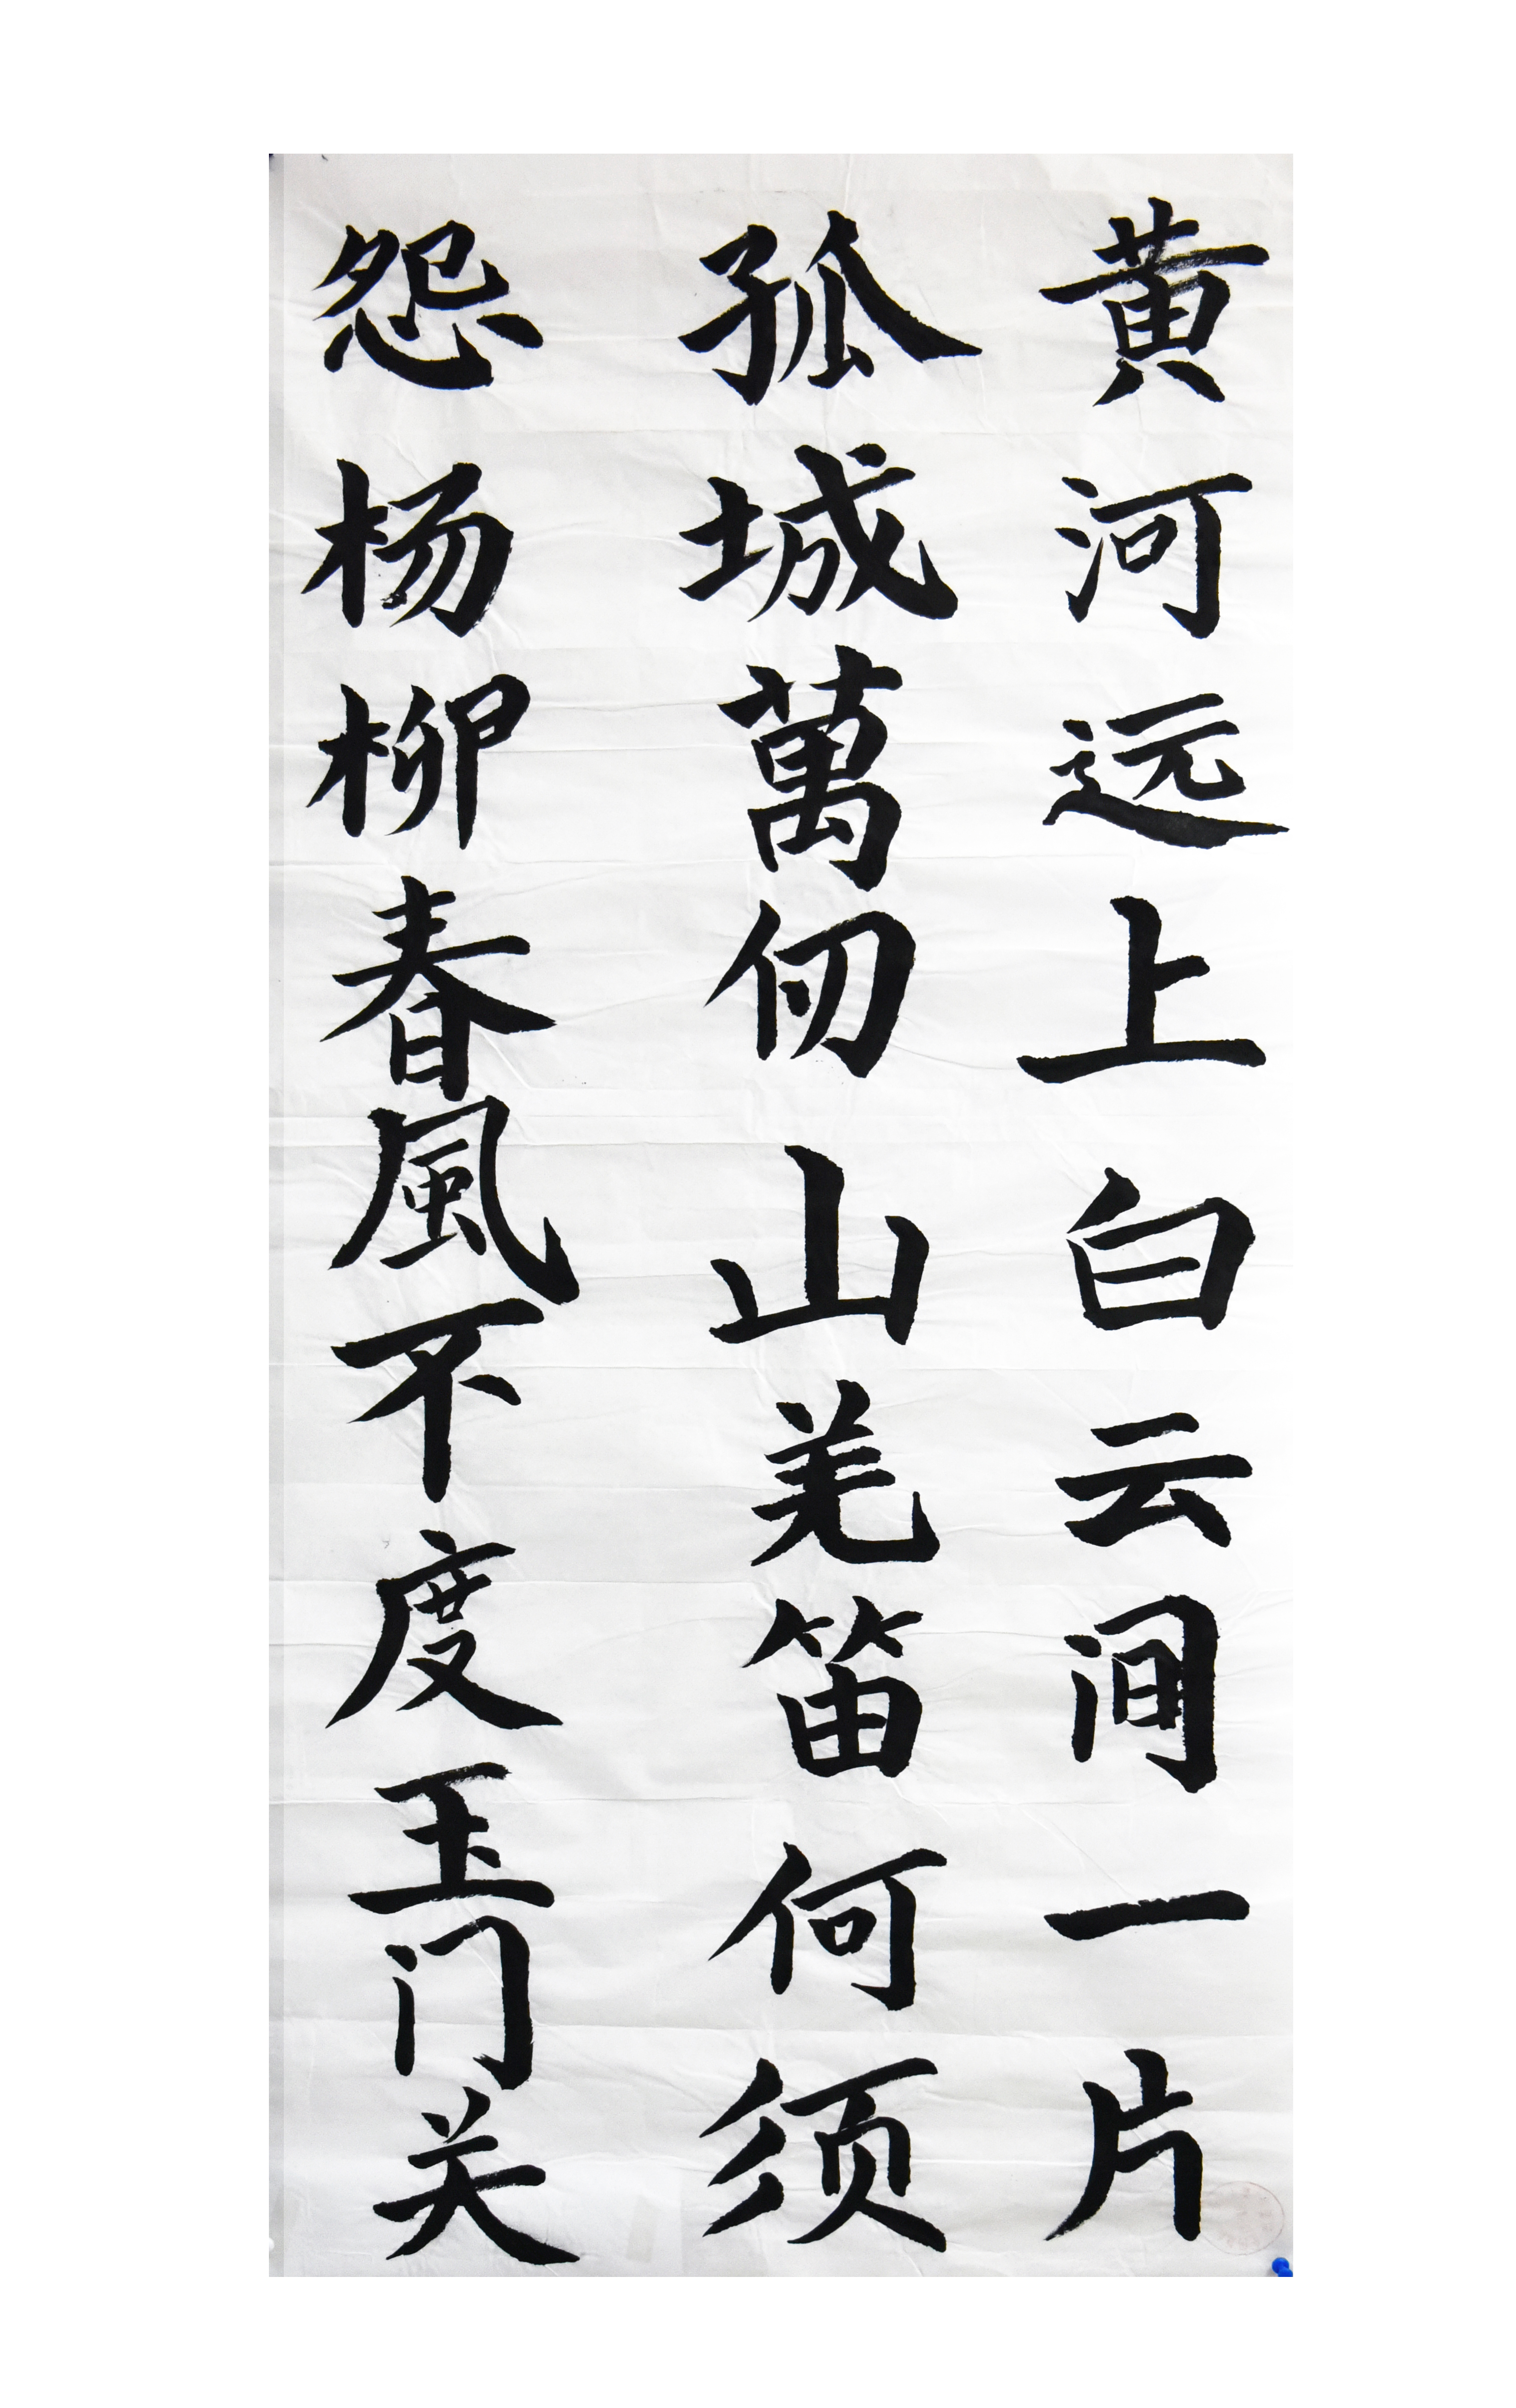 黄河远上白云间一片
孤城萬仞山羌笛何须
怨杨柳春風不度玉门关